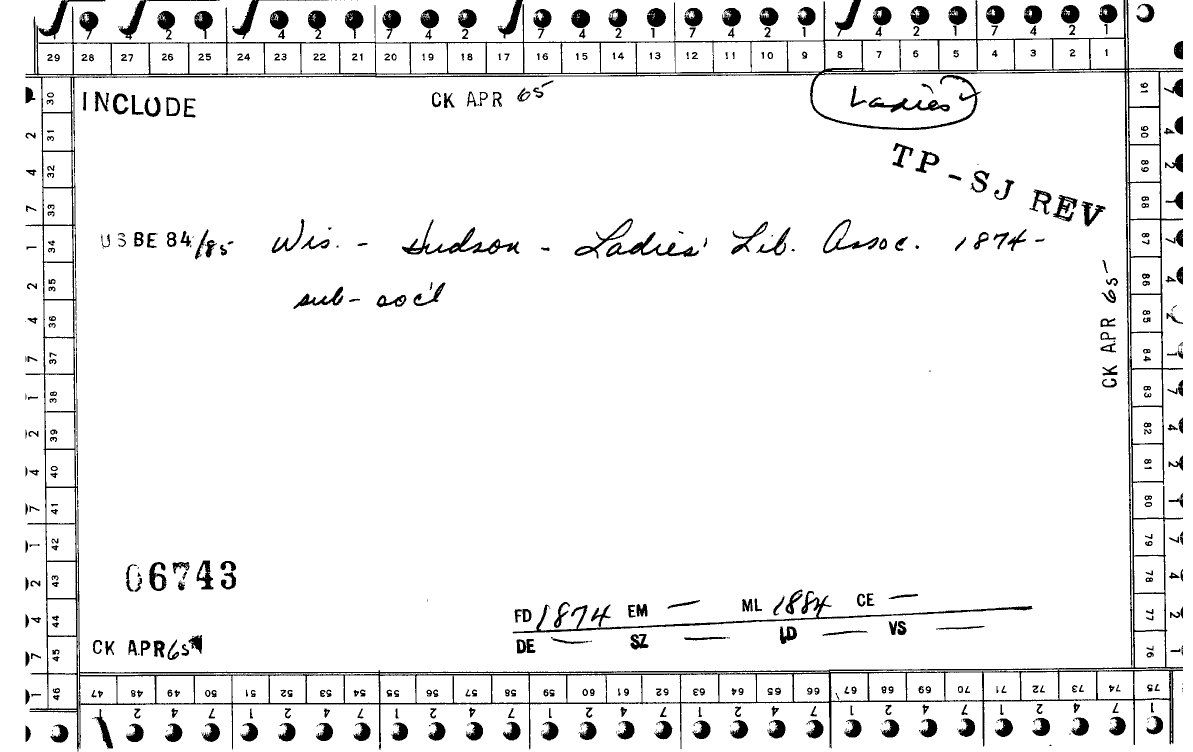 7 4 2 1 7 4 2 1 7 4 2 1 7 4 2 1 7 4 2 1 7 4 2 1 7 4 2 1
29 28 27 26 25 24 23 22 21 20 19 18 17 16 15 14 13 12 11 10 9 8 7 6 5 4 3 2 1
INCLUDE CK APR 65 Ladies'
TP-SJ REV
USBE 84/85 Wis. - Hudson - Ladies' Lib. Assoc. 1874-
sub-soc'l
CK APR 65
06743
FD 1874 EM — ML 1884 CE —
DE — SZ — LD — VS —
CK APR 65
30 31 32 33 34 35 36 37 38 39 40 41 42 43 44 45 46
91 90 89 88 87 86 85 84 83 82 81 80 79 78 77 76
47 48 49 50 51 52 53 54 55 56 57 58 59 60 61 62 63 64 65 66 67 68 69 70 71 72 73 74 75
1 2 4 7 1 2 4 7 1 2 4 7 1 2 4 7 1 2 4 7 1 2 4 7 1 2 4 7 1